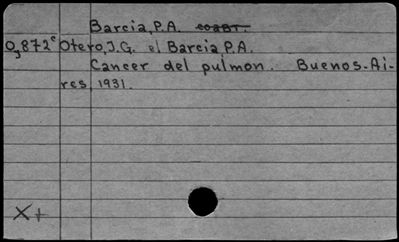 Barcia, P.A. coaut.
O,872c Otero, J.G. el Barcia P.A.
Cancer del pulmon. Buenos-Ai-
res, 1931.
X+